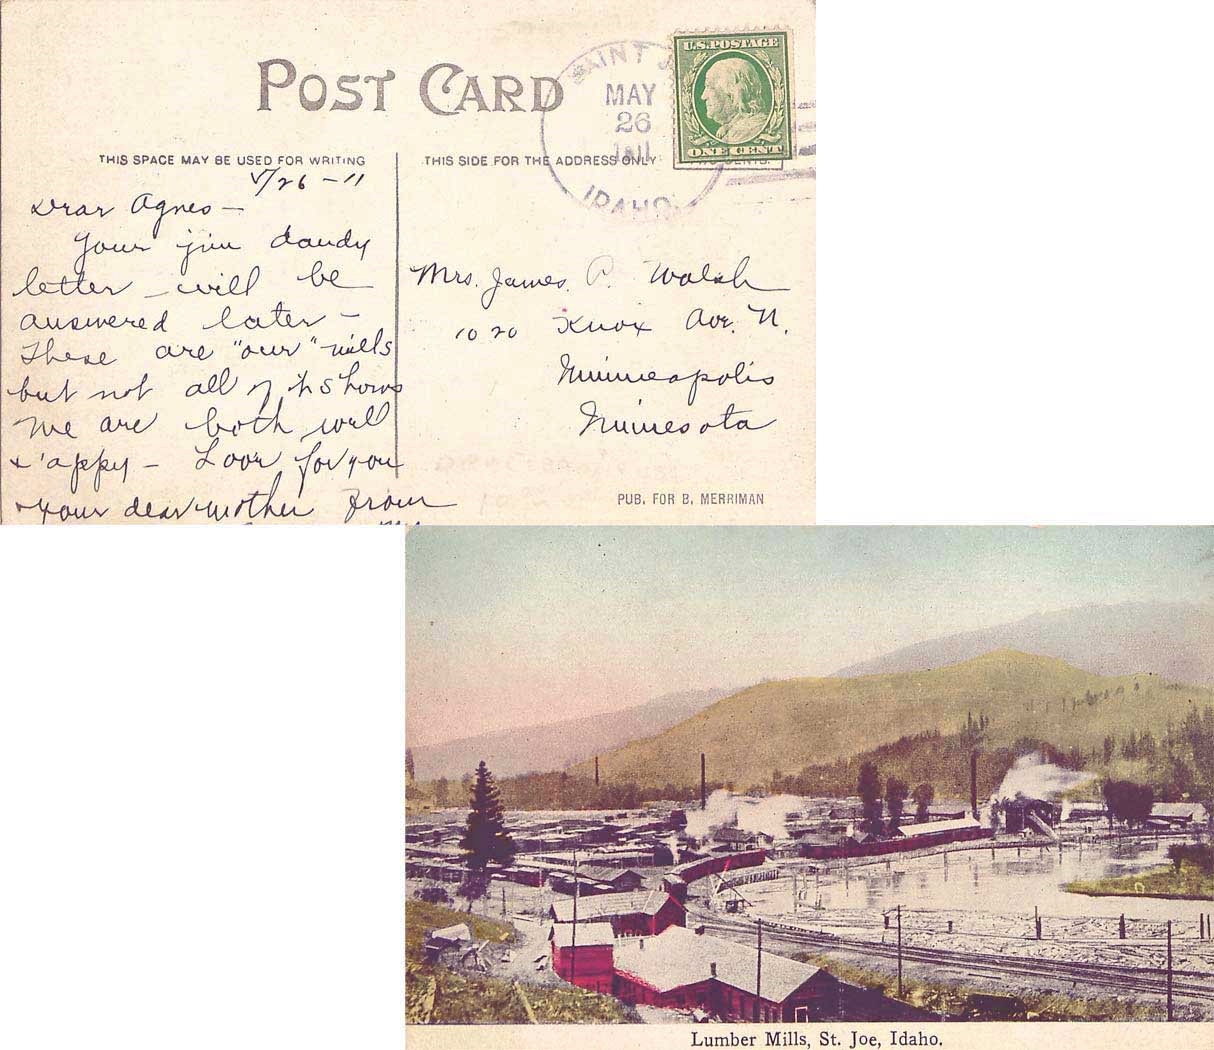 POST CARD
SAINT J
MAY
26
1911
IDAHO
U.S. POSTAGE
ONE CENT
THIS SPACE MAY BE USED FOR WRITING
THIS SIDE FOR THE ADDRESS ONLY
5/26-11
Dear Agnes —
Your jim dandy
letter – will be
answered later –
These are "our" mills
but not all of it shows
We are both well
& 'appy – Love for you
& your dear mother from
Mrs. James P. Walsh
1020 Knox Ave. N.
Minneapolis
Minnesota
PUB. FOR B. MERRIMAN
Lumber Mills, St. Joe, Idaho.